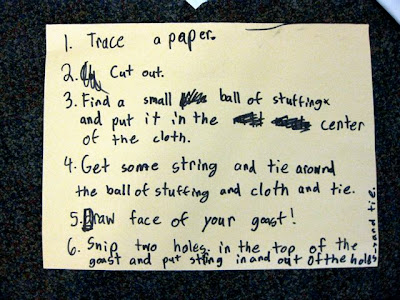 1. Trace a paper.
2. Cut out.
3. Find a small ball of stuffing
and put it in the center
of the cloth.
4. Get some string and tie around
the ball of stuffing and cloth and tie.
5. Draw face of your goast!
6. Snip two holes in the top of the
goast and put string in and out of the holes
and tie.